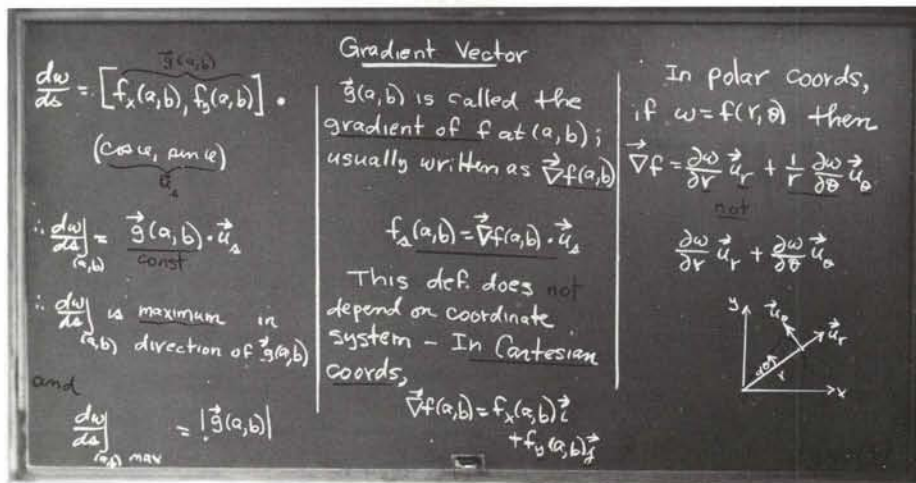 Gradient Vector
g⃗(a,b)
dw/ds = [f_x(a,b), f_y(a,b)] ·
(cos φ, sin φ)
u⃗_s
∴ dw/ds|(a,b) = g⃗(a,b) · u⃗_s
const
∴ dw/ds|(a,b) is maximum in
direction of g⃗(a,b)
and
dw/ds|(a,b) max = |g⃗(a,b)|
g⃗(a,b) is called the
gradient of f at (a,b);
usually written as ∇⃗f(a,b)
f_s(a,b) = ∇⃗f(a,b) · u⃗_s
This def. does not
depend on coordinate
system – In Cartesian
coords,
∇⃗f(a,b) = f_x(a,b) i⃗
+ f_y(a,b) j⃗
In polar coords,
if w = f(r,θ) then
∇⃗f = ∂w/∂r u⃗_r + 1/r ∂w/∂θ u⃗_θ
not
∂w/∂r u⃗_r + ∂w/∂θ u⃗_θ
y u⃗_θ u⃗_r
dθ r
x